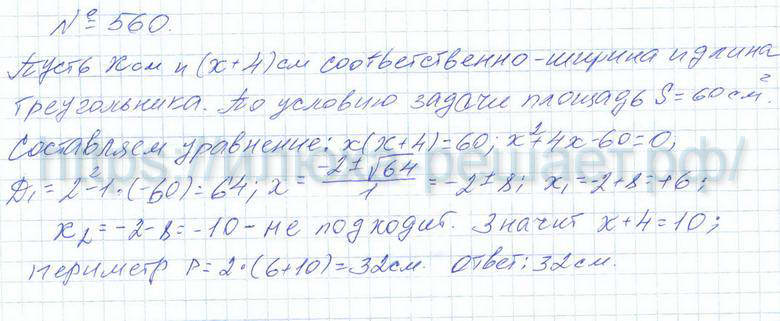 № 560.
Пусть x см и (x+4) см соответственно - ширина и длина
треугольника. По условию задачи площадь S = 60 см².
Составляем уравнение: x(x+4)=60; x²+4x-60=0;
D₁ = 2²-1·(-60) = 64; x = (-2±√64)/1 = -2±8; x₁ = -2+8 = +6;
x₂ = -2-8 = -10 - не подходит. Значит x+4=10;
периметр P = 2·(6+10) = 32 см. Ответ: 32 см.